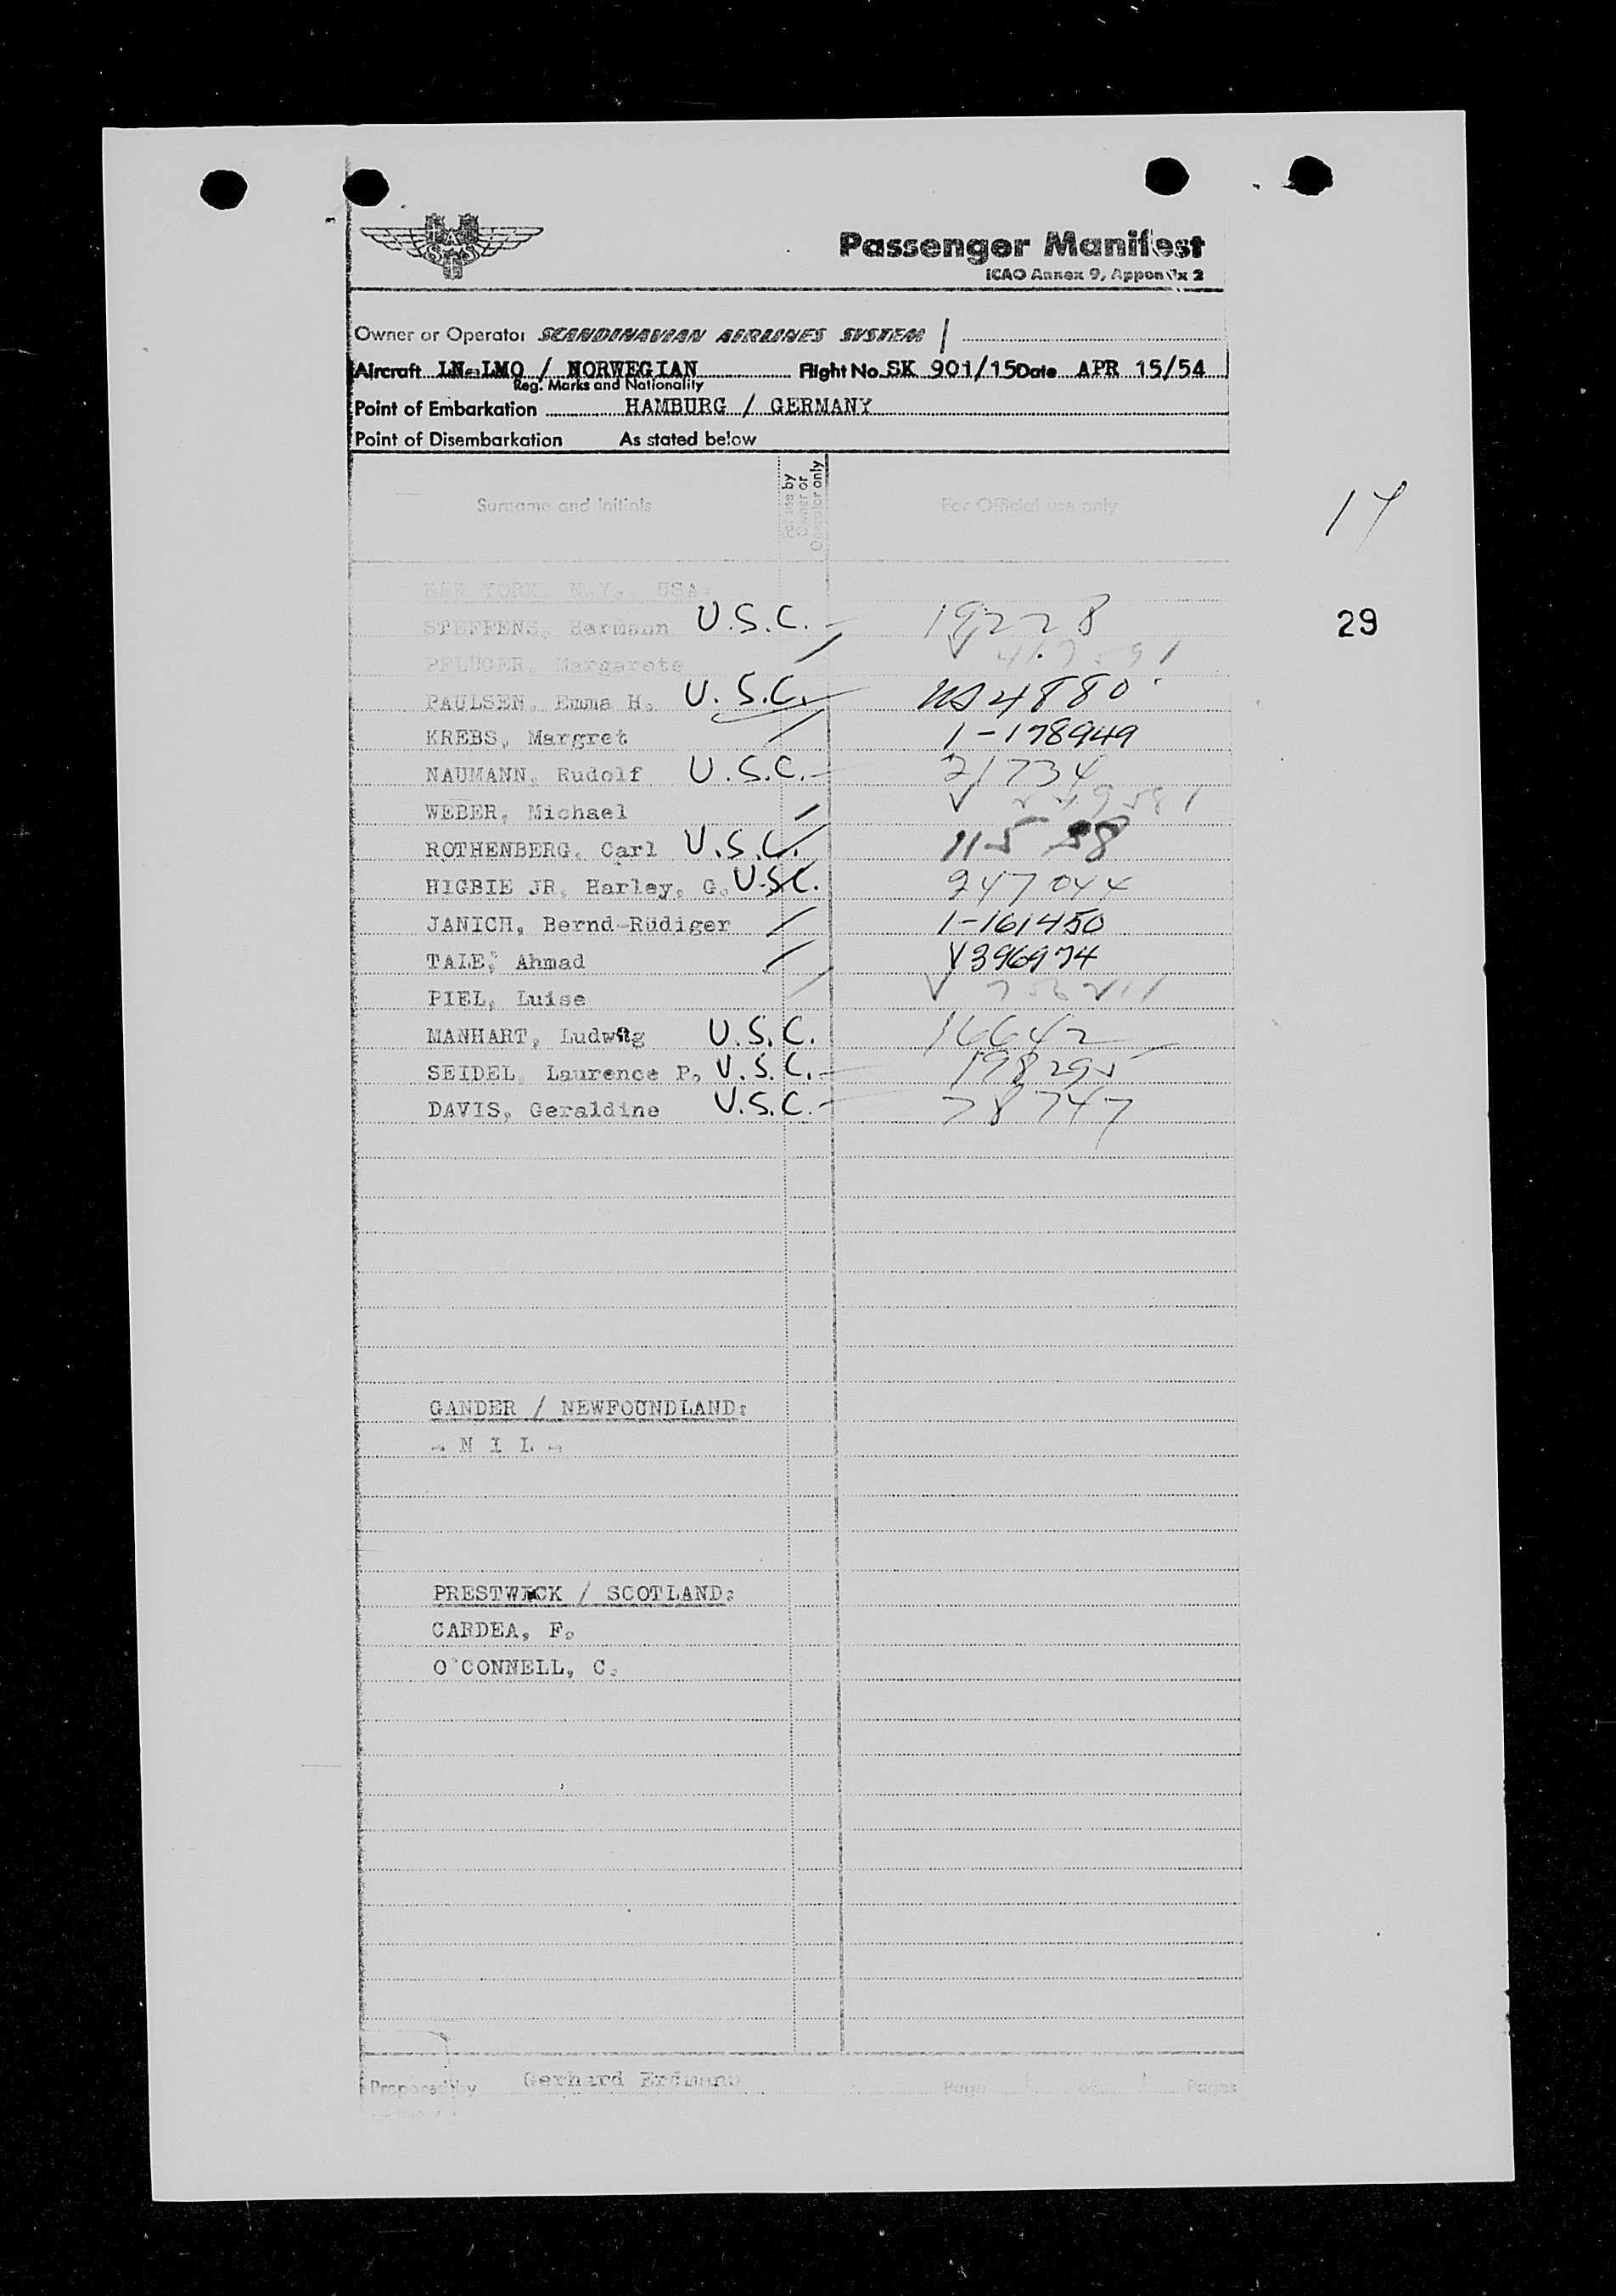 SAS
Passenger Manifest
ICAO Annex 9, Appendix 2
Owner or Operator SCANDINAVIAN AIRLINES SYSTEM
Aircraft LN-LMO / NORWEGIAN Flight No. SK 901/15 Date APR 15/54
Reg. Marks and Nationality
Point of Embarkation HAMBURG / GERMANY
Point of Disembarkation As stated below
Surname and Initials For use by Owner or Operator only For Official use only
14
NEW YORK, N.Y., USA:
STEFFENS, Hermann U.S.C. - 19228
29
PFLÜGER, Margarete / V
PAULSEN, Emma H. U.S.C. 4880
KREBS, Margret / 1-178949
NAUMANN, Rudolf U.S.C. - 21734
WEBER, Michael / V
ROTHENBERG, Carl U.S.C. 115 58
HIGBIE JR, Harley, G. U.S.C. 247044
JANICH, Bernd-Rüdiger / 1-161450
TALE, Ahmad / V396974
PIEL, Luise / V
MANHART, Ludwig U.S.C. 16642
SEIDEL, Laurence P. U.S.C. - 198295
DAVIS, Geraldine U.S.C. - 78747
GANDER / NEWFOUNDLAND:
- N I L -
PRESTWICK / SCOTLAND:
CARDEA, F.
O'CONNELL, C.
Prepared by Gerhard Erdmann Page of Pages